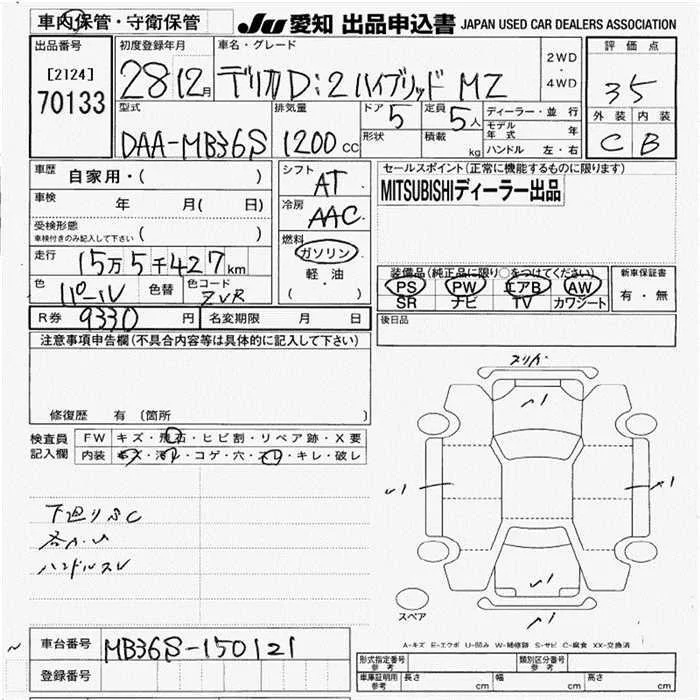 車内保管・守衛保管
JU 愛知 出品申込書 JAPAN USED CAR DEALERS ASSOCIATION
出品番号
[2124]
70133
初度登録年月
28 12月
車名・グレード
デリカD:2 ハイブリッド MZ
2WD
・
4WD
評価点
35
外装 内装
C B
型式
DAA-MB36S
排気量
1200 cc
ドア 5
定員 5人
形状
積載 kg
ディーラー・並行
モデル年式 年
ハンドル 左・右
車歴 自家用・( )
車検 年 月( 日)
受検形態
車検付きのみ記入して下さい ( )
走行 15万5千427km
色 パール 色替 色コード ZVR
R券 9330円 名変期限 月 日
シフト
AT
冷房
AAC
燃料
ガソリン
・
軽油
( )
セールスポイント(正常に機能するものに限ります)
MITSUBISHIディーラー出品
装備品(純正品に限り○をつけてください)
PS PW エアB AW
SR ナビ TV カワシート
新車保証書
有・無
後日品
注意事項申告欄(不具合内容等は具体的に記入して下さい)
修復歴 有 〔箇所 〕
検査員
記入欄
FW キズ・飛石・ヒビ割・リペア跡・X要
内装 キズ・汚レ・コゲ・穴・スレ・キレ・破レ
下廻りサC
各A・U
ハンドルスレ
スペア
A-キズ E-エクボ U-凹み W-補修跡 S-サビ C-腐食 XX-交換済
車台番号 MB36S-150121
登録番号
形式指定番号
参考
類別区分番号
参考
車庫証明用
参考
長さ cm 幅 cm 高さ cm